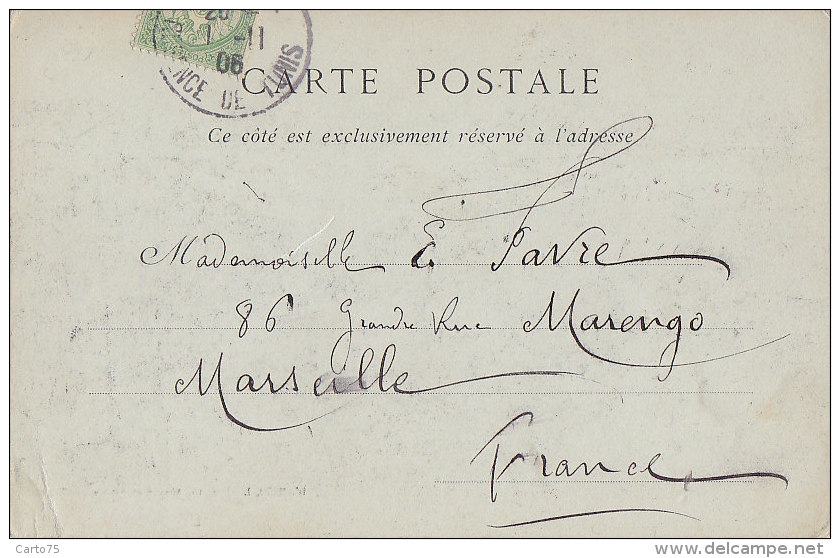 20
1 -11
06
CARTE POSTALE
DE TUNIS
Ce côté est exclusivement réservé à l'adresse
Mademoiselle E Favre
86 Grande Rue Marengo
Marseille
France
Carto75
www.delcampe.net